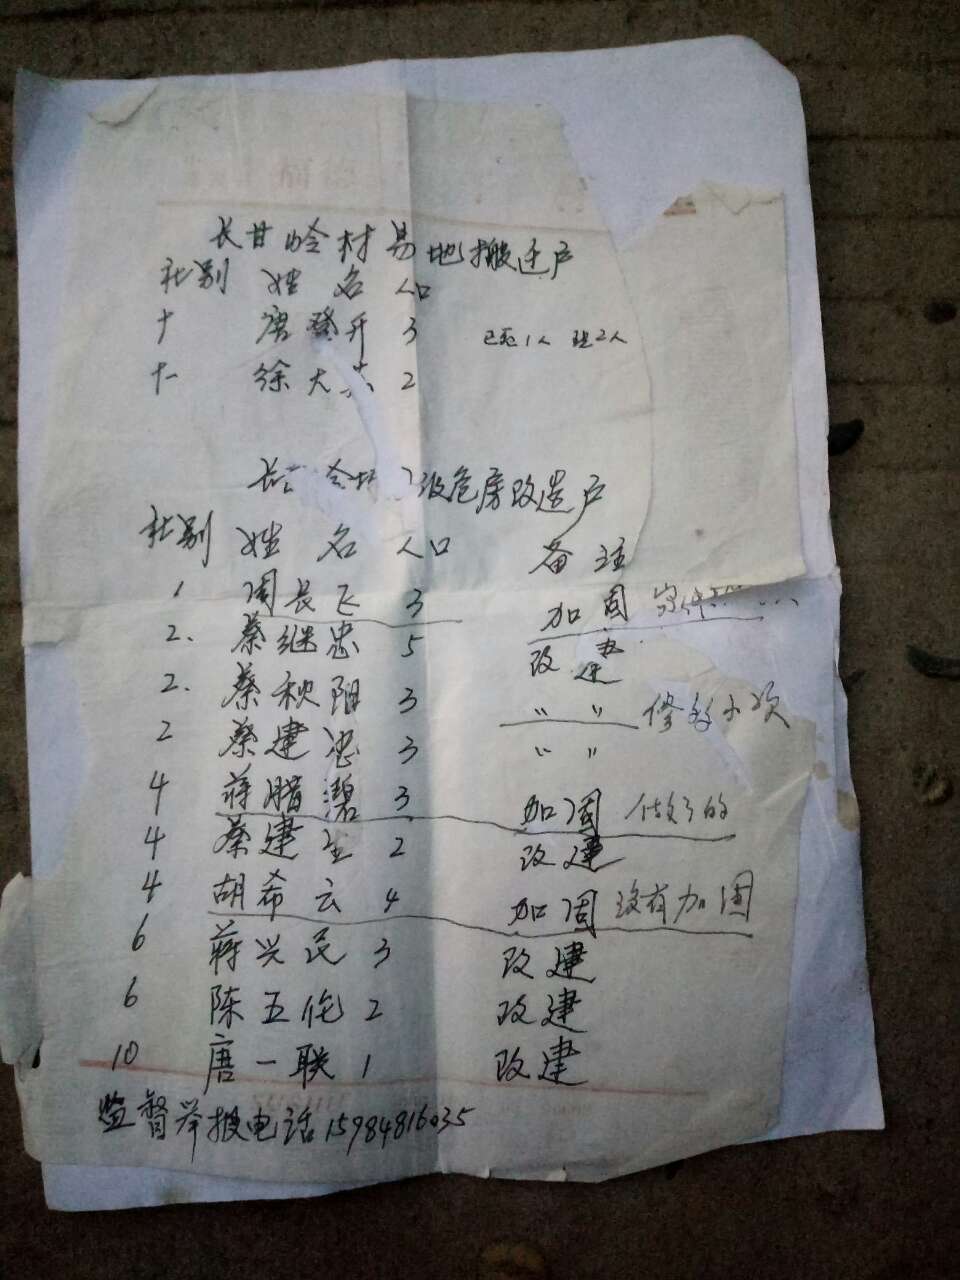 长甘岭村易地搬迁户
社别 姓名 人口
十 唐登开 3 已死1人 现2人
十一 徐大 2
长 岭村 级危房改造户
社别 姓名 人口 备注
1 周长飞 3 加固
2. 蔡继忠 5 改建
2. 蔡秋阳 3 〃 〃 修
2 蔡建忠 3 〃 〃
4 蒋腊碧 3 加固 做好了的
4 蔡建全 2 改建
4 胡希云 4 加固 没有加固
6 蒋兴民 3 改建
6 陈五佗 2 改建
10 唐一联 1 改建
监督举报电话15984816035